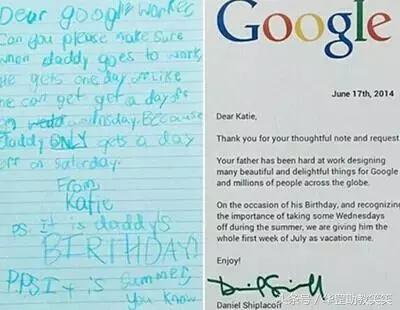 Dear google worker,
Can you please make sure
when daddy goes to work,
he gets one day off. like
he can get get a day off
on wednesday. Because
daddy ONLY gets a day
off on saturday.
From,
Katie
P.S. It is daddy's
BIRTHDAY!
P.P.S. It is summer,
you know
Google
June 17th, 2014
Dear Katie,
Thank you for your thoughtful note and request
Your father has been hard at work designing
many beautiful and delightful things for Google
and millions of people across the globe.
On the occasion of his Birthday, and recognizing
the importance of taking some Wednesdays
off during the summer, we are giving him the
whole first week of July as vacation time.
Enjoy!
Daniel Shiplacoff
头条号/华罡助教英英